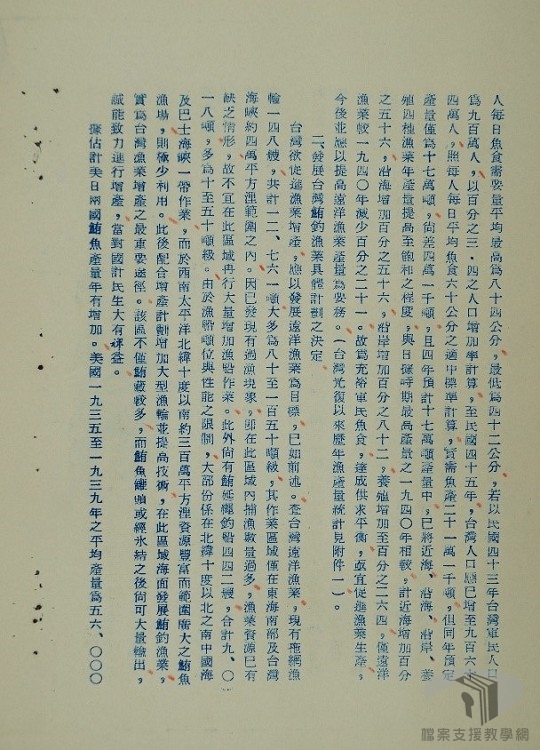 人每日魚食需要量平均最高為八十四公分，最低為四十二公分，若以民國四十三年台灣軍民人口
為九百萬人，以百分之三·四之人口增加率計算，至民國四十五年，台灣人口應已增至九百六十
四萬人，照每人每日平均魚食六十公分之適中標準計算，實需魚產二十一萬一千噸，但同年預定
產量僅為十七萬噸，尚差四萬一千噸，且四年預計十七萬噸產量中，已將近海、沿海、沿岸、養
殖四種漁業年產量提高至飽和之程度，與日據時期最高產量之一九四〇年相較，計近海增加百分
之五十六，沿海增加百分之五十六，沿岸增加百分之八十二，養殖增加至百分之二六四，僅遠洋
漁業較一九四〇年減少百分之二十一。故為充裕軍民魚食，達成供求平衡，亟宜促進漁業生產，
今後並應以提高遠洋漁業產量為要務。（台灣光復以來歷年漁產量統計見附件一）。
二、發展台灣鮪釣漁業具體計劃之決定
台灣欲促進漁業增產，應以發展遠洋漁業為目標，已如前述。查台灣遠洋漁業，現有拖網漁
輪一四八艘，共計一二、七六一噸大多為八十至一百五十噸級，其作業區域僅在東海南部及台灣
海峽約四萬平方浬範圍之內。因已發現有過漁現象，即在此區域內捕漁數量過多，漁業資源已有
缺乏情形，故不宜在此區域再行大量增加漁船作業。此外尚有鮪延繩釣船四四二艘，合計九、〇
一八噸，多為十至五十噸級。由於漁船噸位與性能之限制，大部份係在北緯十度以北之南中國海
及巴士海峽一帶作業，而於西南太平洋北緯十度以南約三百萬平方浬資源豐富而範圍廣大之鮪魚
漁場，則極少利用。此後配合增產計劃增加大型漁輪並提高技術，在此區域海面發展鮪釣漁業，
實為台灣漁業增產之最重要途徑。該區不僅鮪藏較多，而鮪魚罐頭或經氷結之後尚可大量輸出，
誠能致力進行增產，當對國計民生大有裨益。
據估計美日兩國鮪魚產量年有增加。美國一九三五至一九三九年之平均產量為五六、〇〇〇
檔案支援教學網